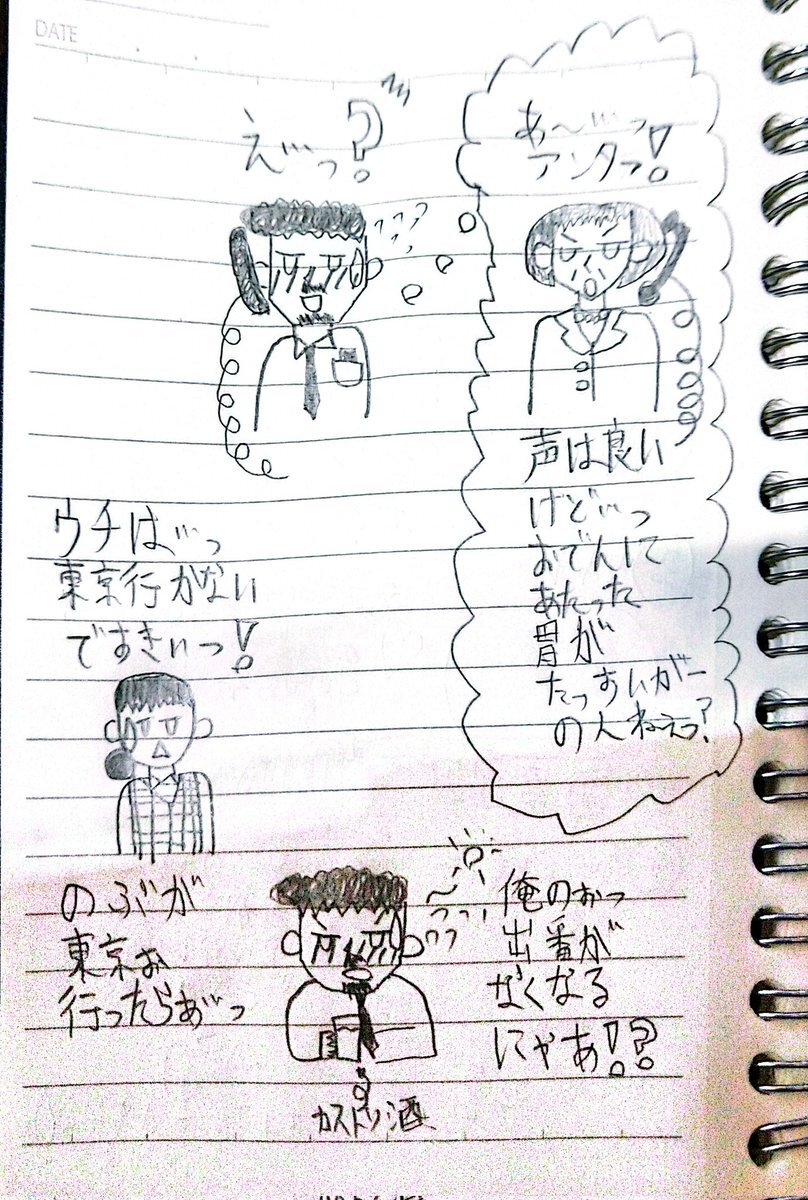 DATE
え゛っ?
あ〜゛っ
アンタっ!
声は良い
けど゛っ
おでんにて
あたった
胃が
たっすいがー
の人ねえっ?
ウチは゛っ
東京行かない
ですきぃっ!
のぶが
東京ぉ
行ったらぁ゛っ
俺のぉっ
出番が
なくなる
にゃあ!?
カストリ酒